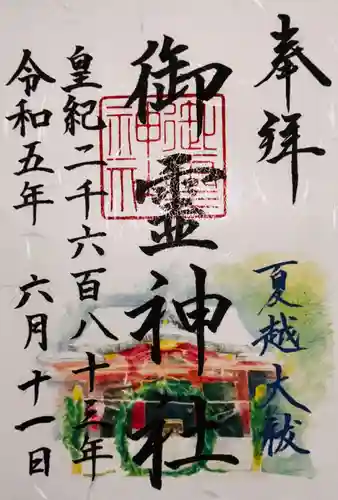 奉拝
夏越大祓
御霊神社
御霊神社
皇紀二千六百八十三年
令和五年 六月十一日